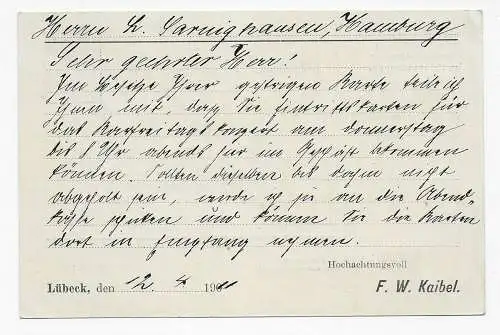 Herrn L. Sarnighausen, Hamburg
Sehr geehrter Herr!
Im Besitze Ihrer gestrigen Karte teile ich
Ihnen mit, daß Sie Eintrittskarten für
das Karfreitagskonzert am Donnerstag
bis 8 Uhr abends hier im Geschäft bekommen
können. Sollten dieselben bis dahin nicht
abgeholt sein, werde ich sie an die Abend-
kasse schicken und können Sie die Karten
dort in Empfang nehmen.
Hochachtungsvoll
Lübeck, den 12. 4 1911 F. W. Kaibel.